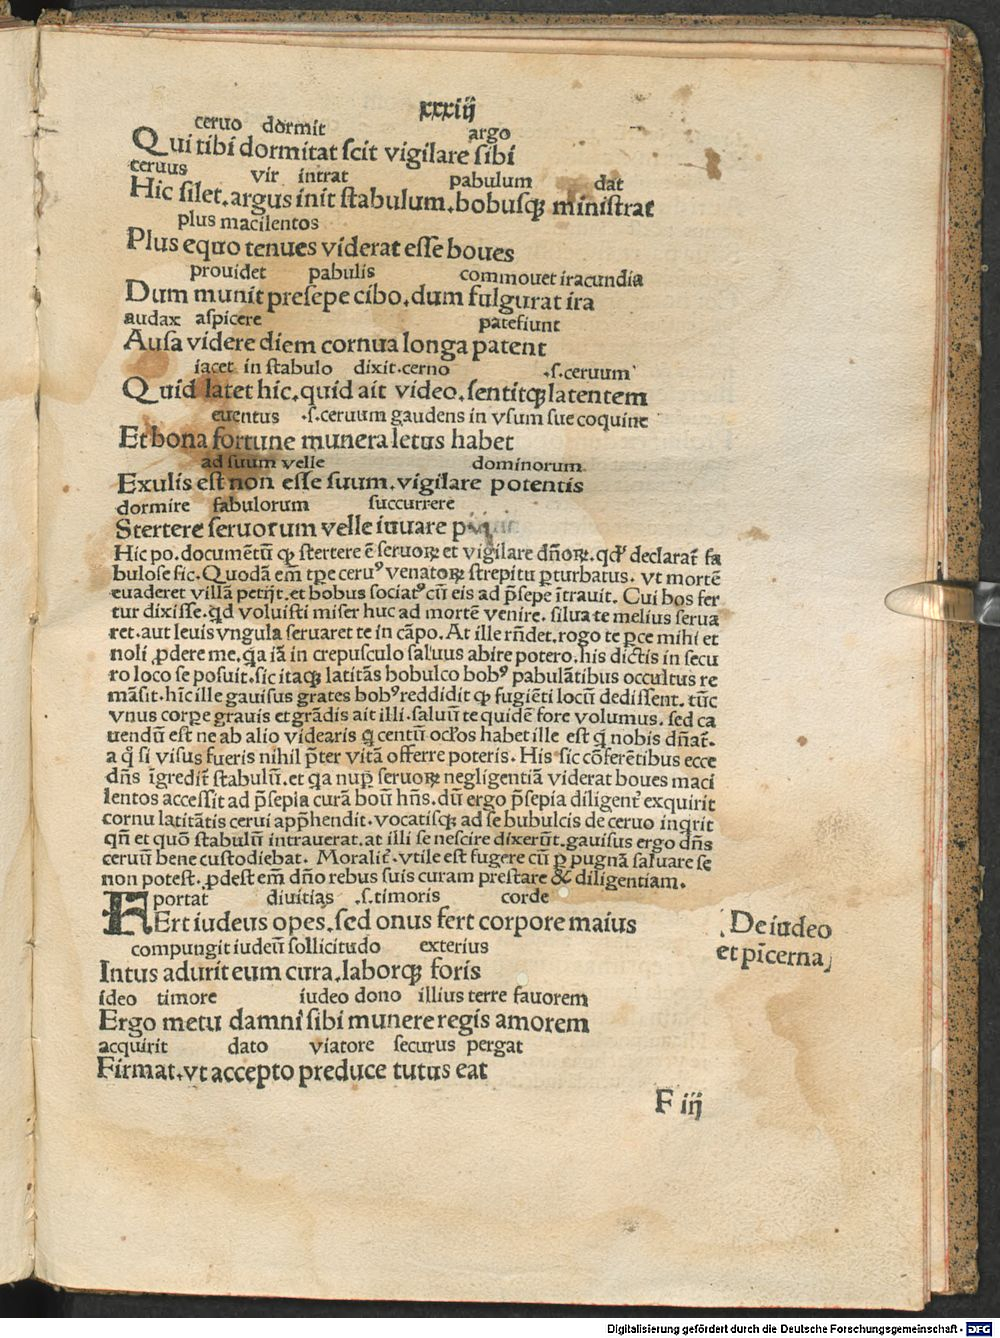 xxxiij
ceruo dormit argo
Qui tibi dormitat scit vigilare sibi
ceruus vir intrat pabulum dat
Hic silet.argus init stabulum.bobusqꝫ ministrat
plus macilentos
Plus equo tenues viderat esse boues
prouidet pabulis commouet iracundia
Dum munit presepe cibo.dum fulgurat ira
audax aspicere patefiunt
Ausa videre diem cornua longa patent
iacet in stabulo dixit.cerno .s.ceruum
Quid latet hic.quid ait video.sentitqꝫ latentem
euentus .s.ceruum gaudens in vsum sue coquine
Et bona fortune munera letus habet
ad suum velle dominorum
Exulis est non esse suum.vigilare potentis
dormire fabulorum succurrere
Stertere seruorum velle iuuare
Hic po.documẽtũ ꝙ stertere ẽ seruoꝝ et vigilare dñoꝝ.qdʼ declarat̃ fa
bulose sic.Quodã em̃ tꝑe ceruꝰ venatoꝝ strepitu ꝑturbatus. vt mortẽ
euaderet villã petijt.et bobus sociatꝰ cũ eis ad p̃sepe ĩtrauit. Cui bos fer
tur dixisse.qd voluisti miser huc ad mortẽ venire. silua te melius serua
ret.aut leuis vngula seruaret te in cãpo. At ille rñdet.rogo te ꝑce mihi et
noli ꝓdere me.q̃a iã in crepusculo saluus abire potero.his dictis in secu
ro loco se posuit.sic itaqꝫ latitãs bobulco bobꝰ pabulãtibus occultus re
mãsit.hĩc ille gauisus grates bobꝰ reddidit ꝙ fugiẽti locũ dedissent. tũc
vnus corꝑe grauis et grãdis ait illi.saluũ te quidẽ fore volumus. sed ca
uendũ est ne ab alio videaris q̃ centũ oclos habet ille est q̃ nobis dñat̃.
a q̊ si visus fueris nihil p̃ter vitã offerre poteris. His sic cõferẽtibus ecce
dñs ĩgredit̃ stabulũ.et q̃a nuꝑ seruoꝝ negligentiã viderat boues maci
lentos accessit ad p̃sepia curã boũ hñs.dũ ergo p̃sepia diligent̃ exquirit
cornu latitãtis cerui app̃hendit.vocatisqꝫ ad se bubulcis de ceruo inqrit
qñ et quõ stabulũ intrauerat.at illi se nescire dixerũt.gauisus ergo dñs
ceruũ bene custodiebat. Moralit̃.vtile est fugere cũ ꝑ pugnã saluare se
non potest.ꝓdest em̃ dño rebus suis curam prestare & diligentiam.
portat diuitias .s.timoris corde
FErt iudeus opes.sed onus fert corpore maius
De iudeo
et pĩcerna
compungit iudeũ sollicitudo exterius
Intus adurit eum cura.laborqꝫ foris
ideo timore iudeo dono illius terre fauorem
Ergo metu damni sibi munere regis amorem
acquirit dato viatore securus pergat
Firmat.vt accepto preduce tutus eat
F iij
Digitalisierung gefördert durch die Deutsche Forschungsgemeinschaft - DFG